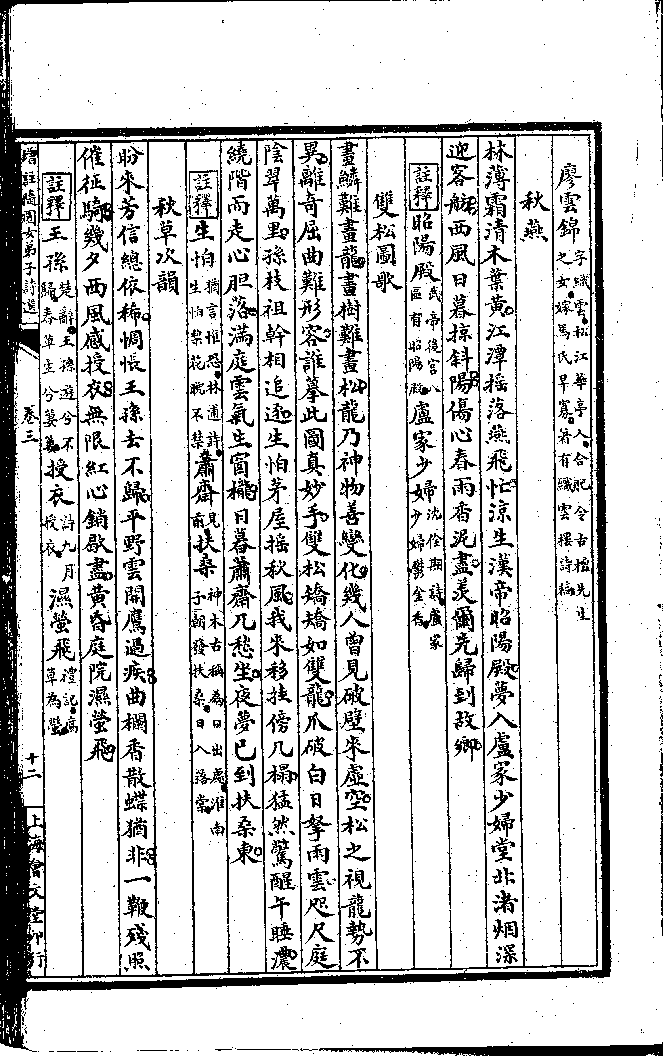 廖雲錦 字織雲松江華亭人合肥令古檀先生之女嫁馬氏早寡著有織雲樓詩稿
秋燕
林薄霜清木葉黃江潭搖落燕飛忙涼生漢帝昭陽殿夢入盧家少婦堂北渚烟深
迎客舫西風日暮掠斜陽傷心春雨香泥盡羨爾先歸到故鄉
註釋 昭陽殿 武帝後宮八區有昭陽殿 盧家少婦 沈佺期詩盧家少婦鬱金香
雙松圖歌
畫鱗難畫龍畫樹難畫松龍乃神物善變化幾人曾見破壁來虛空松之視龍勢不
異離奇屈曲難形容誰摹此圖真妙手雙松矯矯如雙龍爪破白日拏雨雲咫尺庭
陰翠萬里孫枝祖幹相追逐生怕茅屋搖秋風我來移挂傍几榻猛然驚醒午睡濃
繞階而走心胆落滿庭雲氣生窗櫳日暮蕭齋几愁坐夜夢已到扶桑東
註釋 生怕 猶言惟恐林逋詩生怕梨花晚不禁 蕭齋 見前 扶桑 神木古稱為日出處淮南子朝發扶桑日入落棠
秋草次韻
盼來芳信總依稀惆悵王孫去不歸平野雲開鷹過疾曲欄香散蝶猶非一鞭殘照
催征騎幾夕西風感授衣無限紅心銷歇盡黃昏庭院濕螢飛
註釋 王孫 楚辭王孫遊兮不歸春草生兮萋萋 授衣 詩九月授衣 濕螢飛 禮記腐草為螢
增註隨園女弟子詩選
卷三
十二
上海會文堂印行